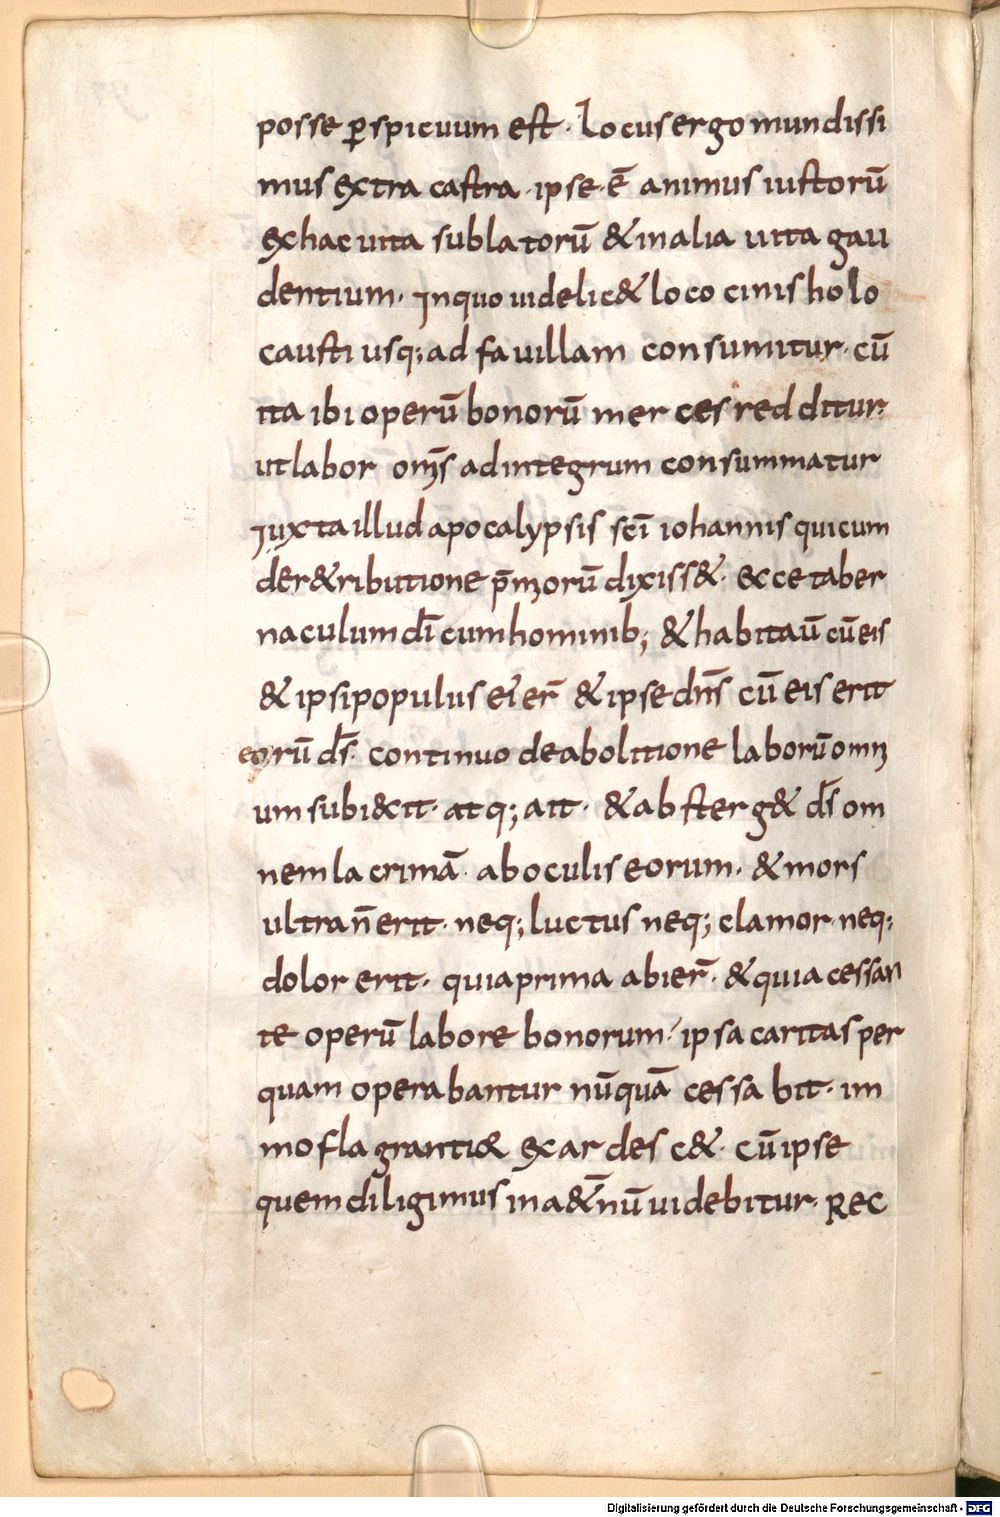 posse ꝑspicuum est· Locus ergo mundissi
mus extra castra· ipse·ē animus iustorū
ex hac uita sublatorū & in alia uita gau
dentium· Inquo uidelic& loco cinis holo
causti usq; ad fauillam consumitur· cū
ita ibi operū bonorū merces redditur·
ut labor om̄s ad integrum consummatur
Iuxta illud apocalypsis sc̄i iohannis qui cum
de r&ributione p̄miorū dixiss&· ecce taber
naculum dī cum hominib; & habitaū cū eis
& ipsi populus eī er̄ & ipse dn̄s cū eis erit
eorū ds̄· continuo de abolitione laborū omni
um subi&it· atq; ait· & absterg& ds̄ om
nem lacrimā· ab oculis eorum· & mors
ultra n̄ erit· neq; luctus neq; clamor· neq;
dolor erit· quia prima abier̄· & quia cessan
te operū labore bonorum· ipsa caritas per
quam operabantur nūquā cessabit· im
mo flagrantiꝰ exardesc&· cū ipse
quem diligimus in a&̄nū uidebitur· Rec
Digitalisierung gefördert durch die Deutsche Forschungsgemeinschaft - DFG